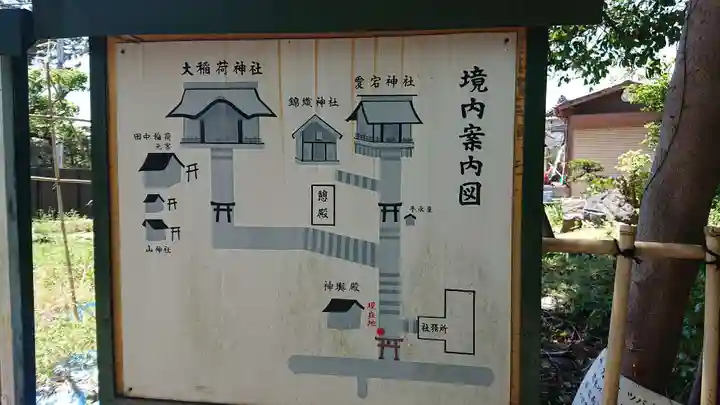 境内案内図
愛宕神社
錦織神社
大稲荷神社
田中稲荷
元宮
山神社
手水屋
憩
殿
神輿殿
現在地
社務所